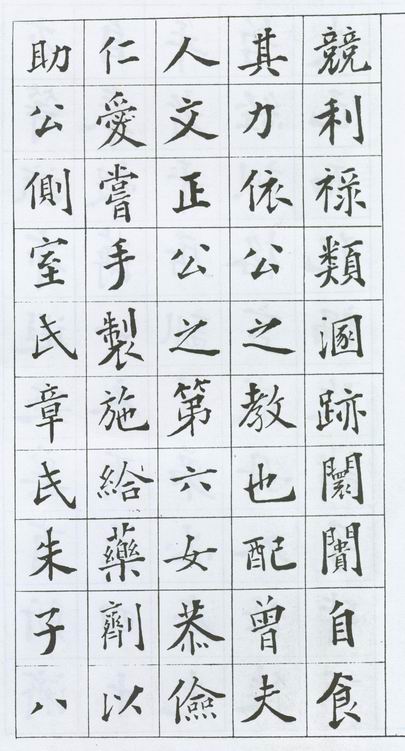 競利祿類溷跡闤闠自食
其力依公之教也配曾夫
人文正公之第六女恭儉
仁愛嘗手製施給藥劑以
助公側室氏章氏朱子八